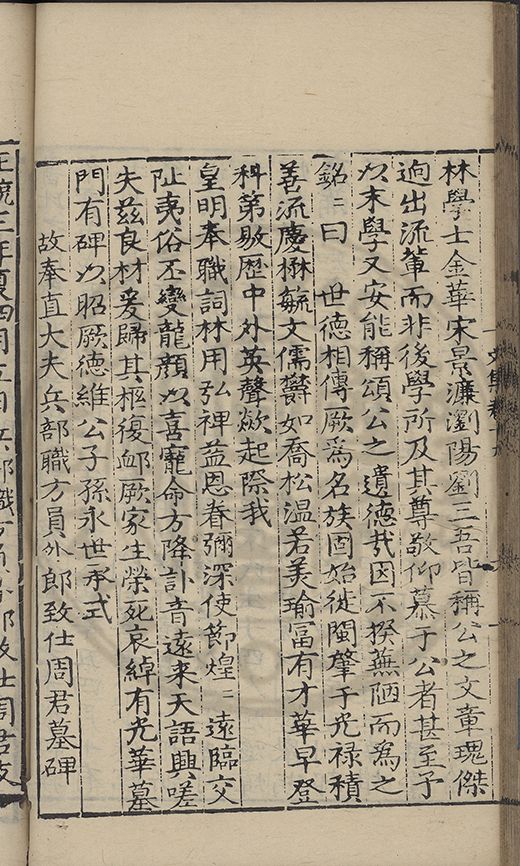 林學士金華宋景濂瀏陽劉三吾皆稱公之文章瑰傑
逈出流輩而非後學所及其尊敬仰慕于公者甚至予
以末學又安能稱頌公之遺德㦲因不揆蕪陋而為之
銘〻曰 世德相傳厥為名族固始徙閩肇于光禄積
善流慶楙毓文儒欝如喬松温若美瑜冨有才華早登
科第敭歴中外英聲歘起際我
皇明奉職詞林用弘裨益恩眷弥深使節煌〻遠臨交
阯夷俗丕變龍顔以喜寵命方降訃音遠来天語興嗟
失兹良材爰歸其柩復䘏厥家生榮死哀綽有光華墓
門有碑以昭厥德維公子孫永世承式
故奉直大夫兵部職方員外郎致仕周君墓碑